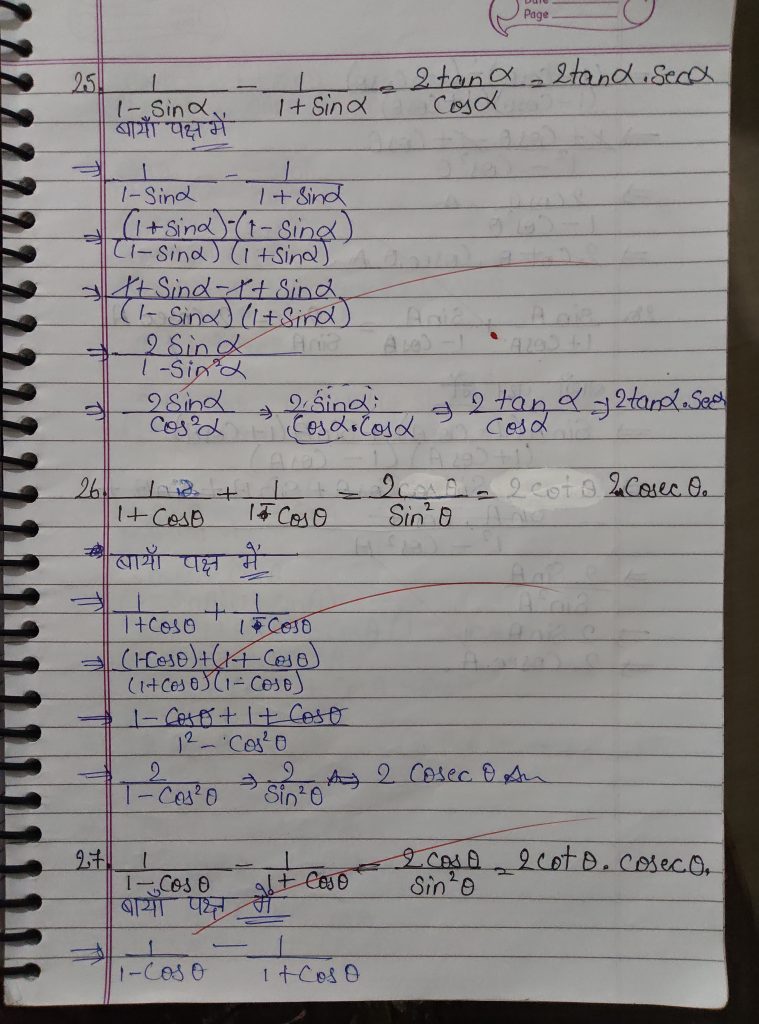 Date
Page
25. 1/(1-Sinα) - 1/(1+Sinα) = 2tanα/Cosα = 2tanα.Secα
बायाँ पक्ष में
⇒ 1/(1-Sinα) - 1/(1+Sinα)
⇒ (1+Sinα)-(1-Sinα)/(1-Sinα)(1+Sinα)
⇒ 1+Sinα-1+Sinα/(1-Sinα)(1+Sinα)
⇒ 2Sinα/1-Sin²α
⇒ 2Sinα/Cos²α ⇒ 2.Sinα/Cosα.Cosα ⇒ 2tanα/Cosα ⇒ 2tanα.Secα
26. 1/(1+Cosθ) + 1/(1-Cosθ) = 2cosθ/Sin²θ = 2cotθ 2.Cosecθ.
बायाँ पक्ष में
⇒ 1/(1+Cosθ) + 1/(1-Cosθ)
⇒ (1-Cosθ)+(1+Cosθ)/(1+Cosθ)(1-Cosθ)
⇒ 1-Cosθ+1+Cosθ/1²-Cos²θ
⇒ 2/1-Cos²θ ⇒ 2/Sin²θ ⇒ 2 Cosecθ An
27. 1/(1-Cosθ) - 1/(1+Cosθ) = 2cosθ/Sin²θ = 2cotθ.cosecθ.
बायाँ पक्ष में
⇒ 1/(1-Cosθ) - 1/(1+Cosθ)